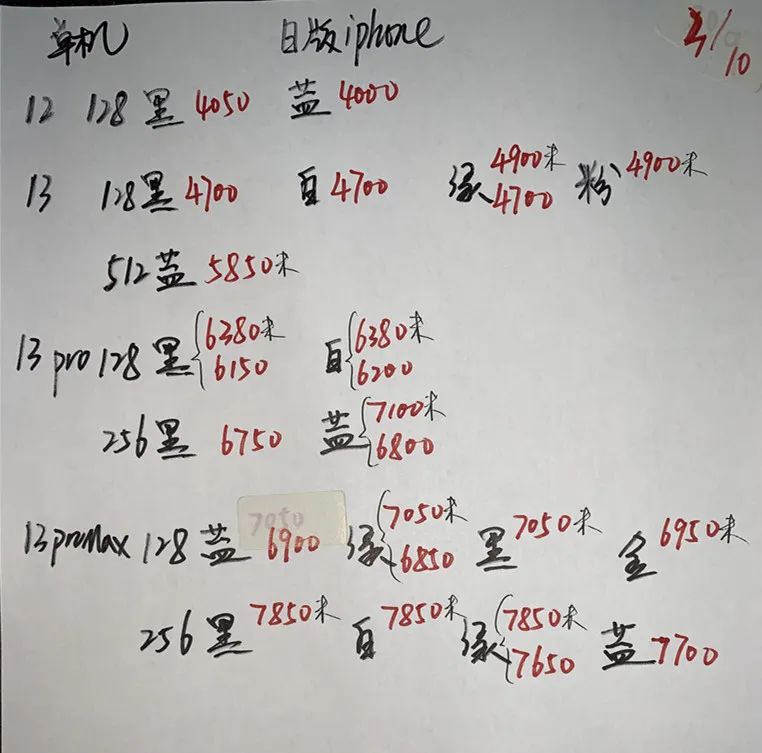 单机 日版iphone 3/10
12 128 黑 4050 蓝 4000
13 128 黑 4700 白 4700 绿 4900未 4700 粉 4900未
512 蓝 5850未
13 pro 128 黑 6380未 6150 白 6380未 6200
256 黑 6750 蓝 7100未 6800
13 proMax 128 蓝 7050 6900 绿 7050未 6850 黑 7050未 金 6950未
256 黑 7850未 白 7850未 绿 7850未 7650 蓝 7700